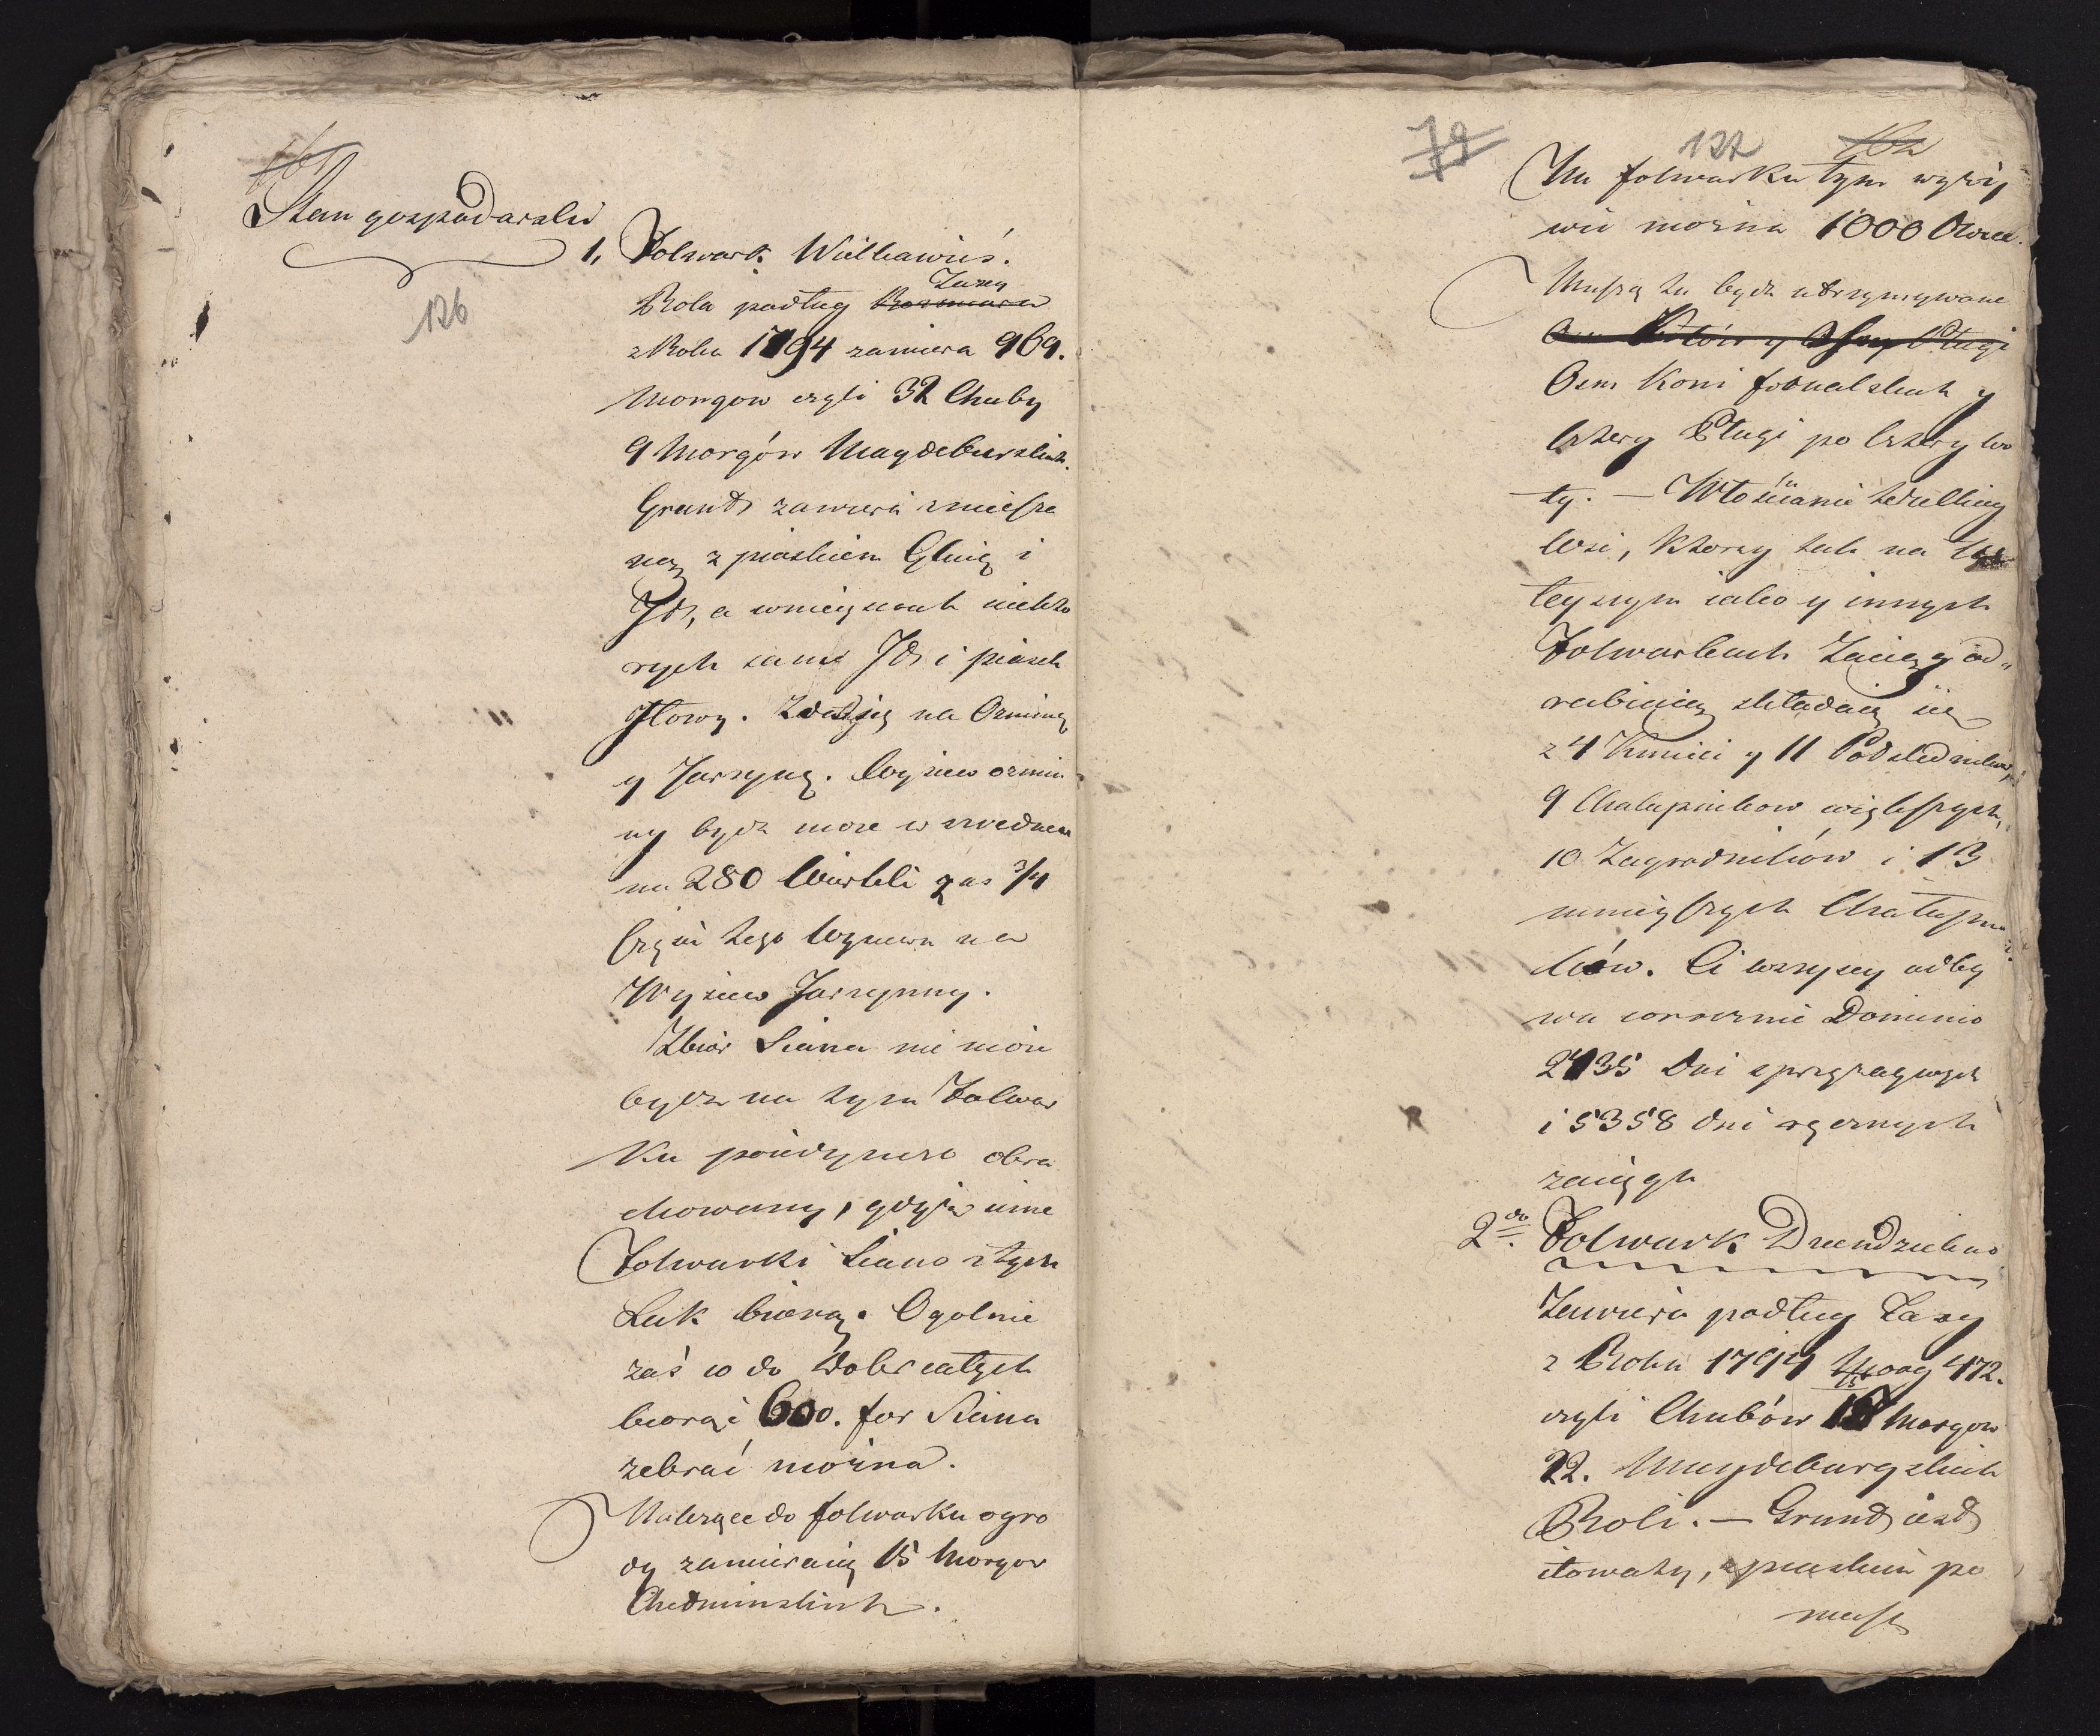 Stan gospodarski
126
1, Folwark Wielkawieś.
Taxy
Rola podług Rozmiaru
z Roku 1794 zamiera 969.
Morgow czyli 32 Chuby
9 Morgów Magdeburskich.
Grunt zawiera zmiesza
ną z piaskiem Glinę i
Ił, a w mieyscach niekto
rych samy Ił i piasek
Iłowy. Zdatny na Oziminę
y Jarzynę. Wysiew ozimi
ny bydz może w srednim
na 280 Wierteli zas 3/4
Częsci tego Wysiewu na
Wysiew Jarzynny.
Zbior Siana nie może
bydz na tym Folwar
ku poiedynczo obra
chowany, gdyż inne
Folwarki Siano z tych
Łąk biorą. Ogolnie
zaś co do Dobr całych
biorąc 600. for Siana
zebrać można.
Należące do folwarku ogro
dy zamieraią 15 Morgow
Chełminskich.
79
127
102
Na folwarku tym wyży
wić można 1000 Owiec.
Muszą tu bydz utrzymywane
Osm Koni fornalskich y
Cztery Pługi po Cztery wo
ły. — Włościanie Wielkiey
Wsi, ktorzy tak na
teyszym iako y innych
Folwarkach Zaciąg od„
rabiaią składaią się
z 4 Kmieci y 11 Posledników
9 Chalupnikow większych,
10 Zagrodników i 13
mnieyszych Chałupni
ków. Ci wszyscy odby
wa corocznie Dominio
2435 Dni sprzężaynych
i 5358 dni ręcznych
zaciągu
2do. Folwark
Zawiera podług Taxy
z Roku 1794 Morg 472.
czyli Chubów 15 Morgow
22. Magdeburgskich
Roli. — Grund iest
iłowaty, z piaskiem po
miesz